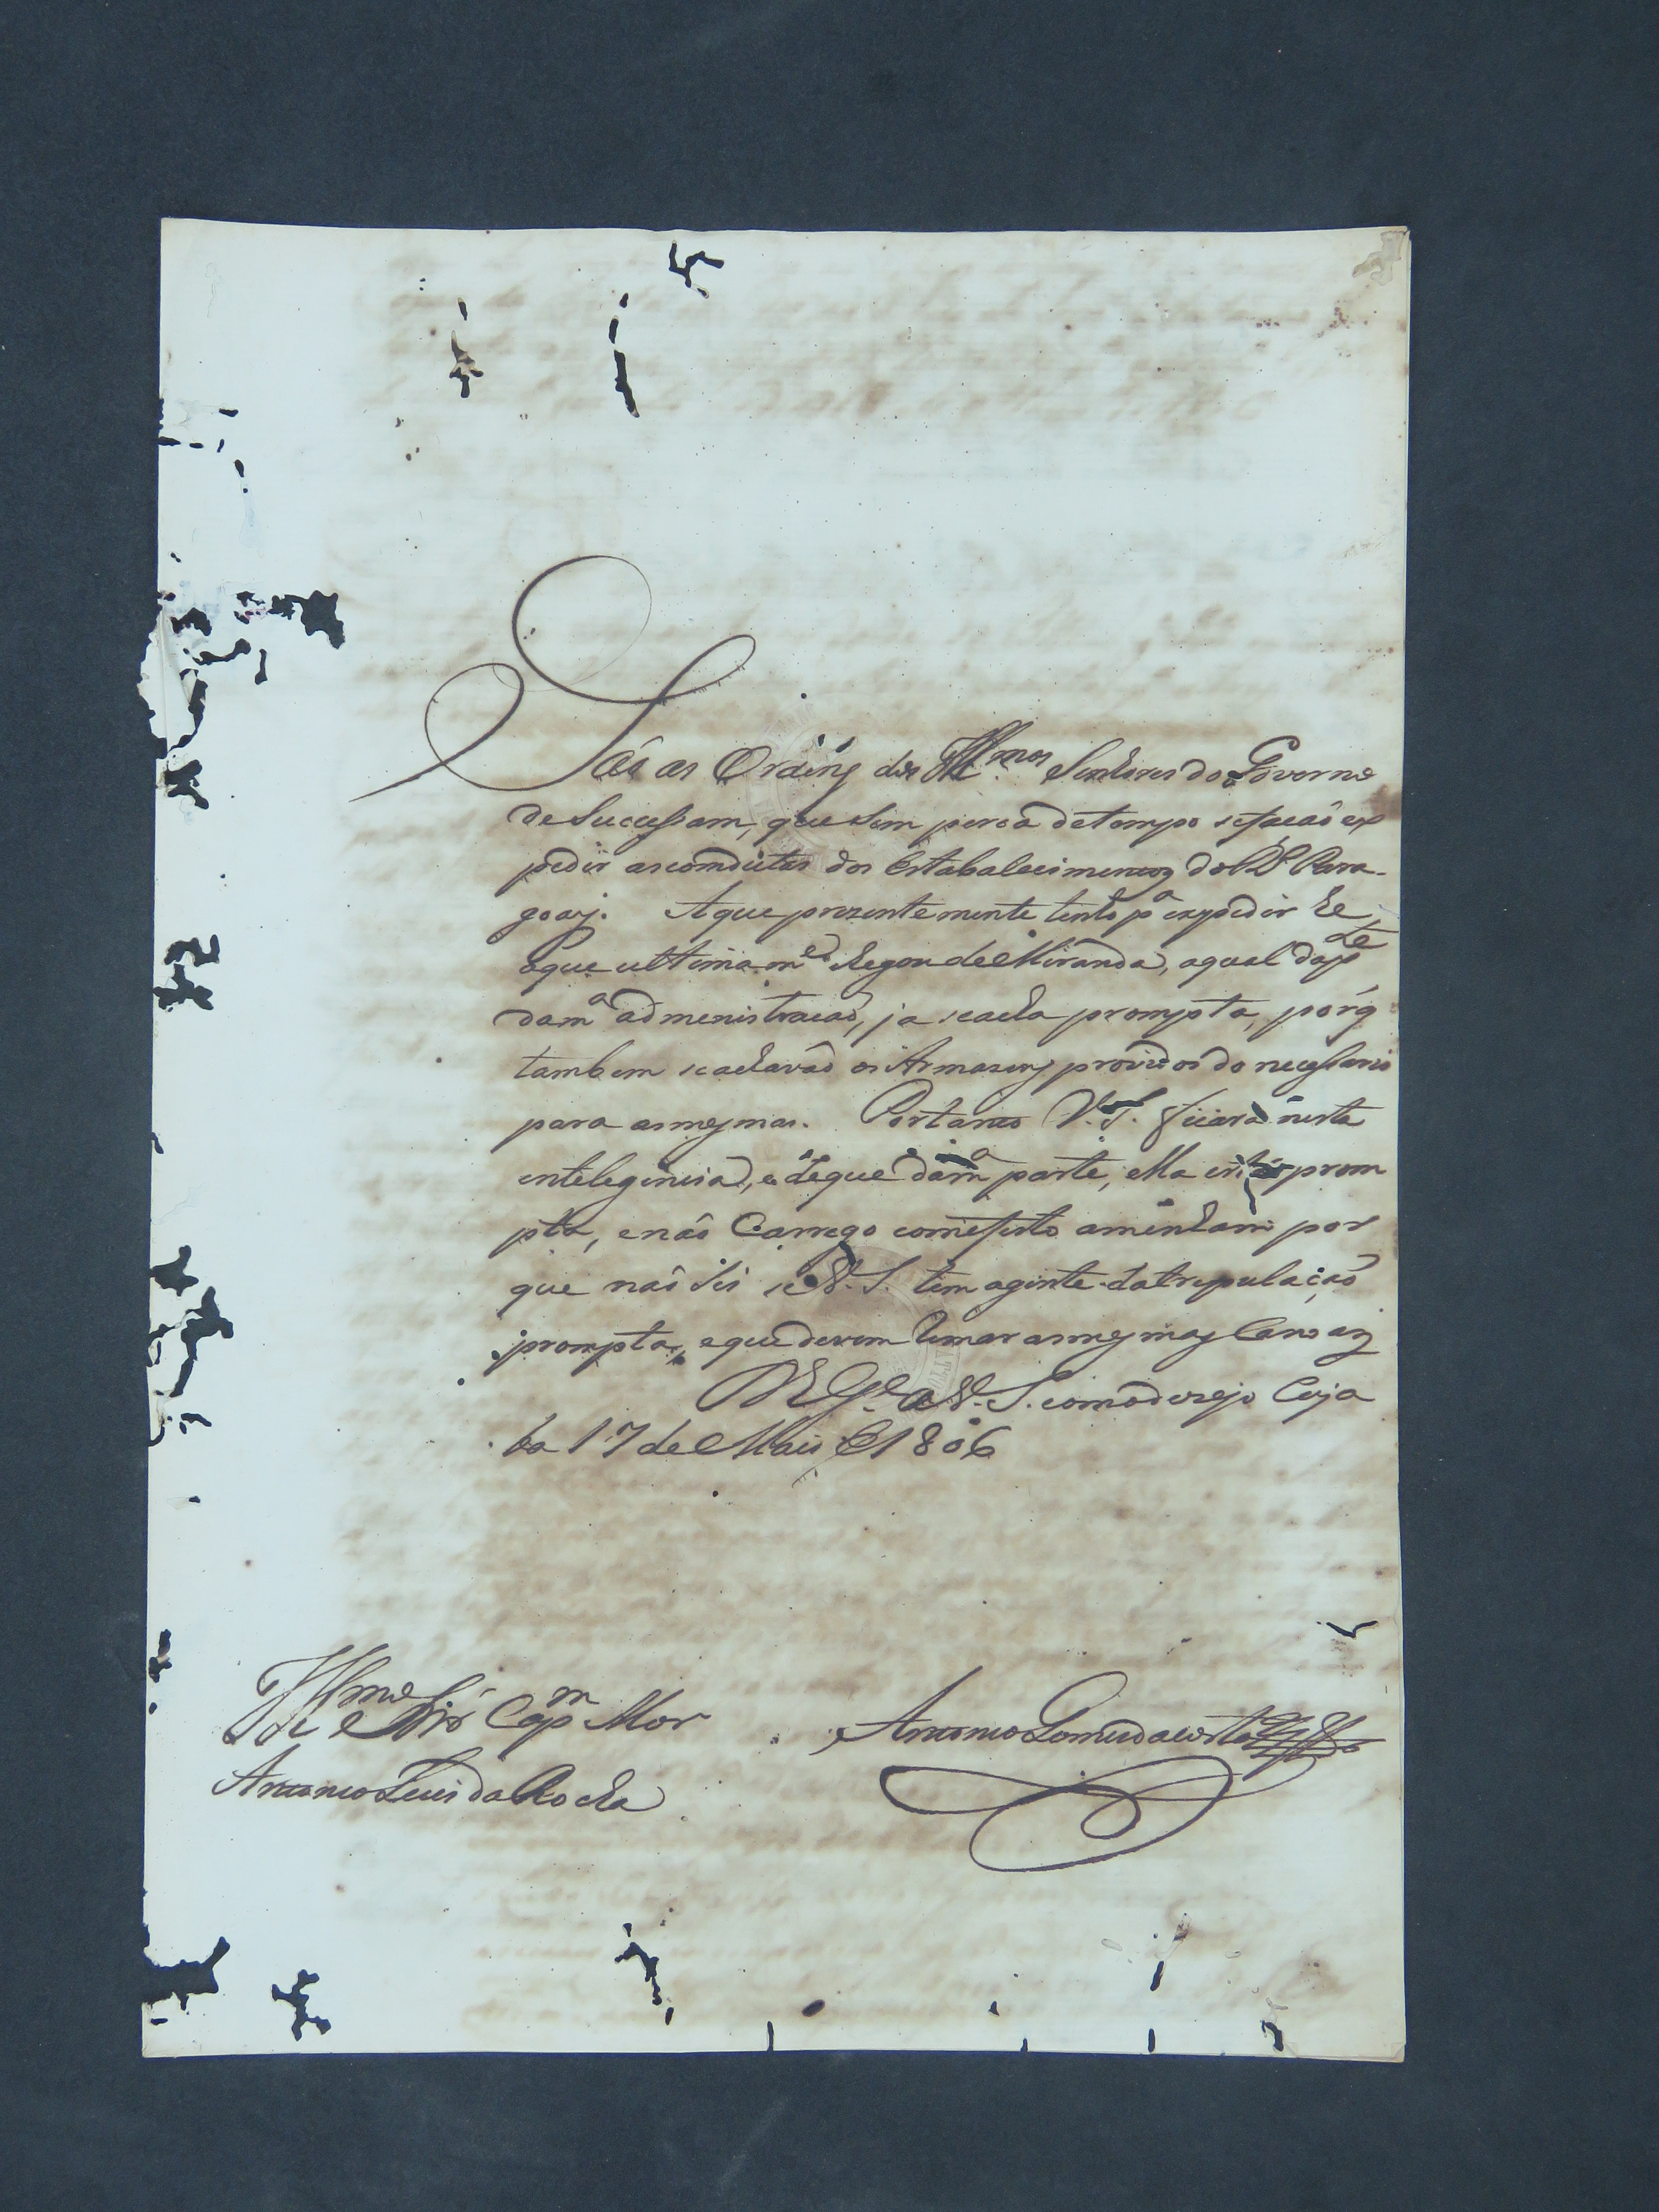 Saó as Ordeñs dos Illmos Senhores do Governo
de Sucessam, que sem perca de tempo se facaó ex
pedir as condutas dos Estabalecimentos do R. Para-
goay. A que prezentemente tenho pa expedir he
a que ultima me chegou de Miranda, a qual da pte
da ma administracaó, ja se acha prompta, porq
tambem se achavaó os Armazens providos do necessario
para as mesmas. Portanto V. S. ficará nesta
intelegencia, e de que da ma parte, ella está prom
pta, e naó Carrego com efeito a menham por
que naó sei se V. S. tem a gente da trepulaçaó
prompta, e que devem tomar as mesmas Canoas
D.s G.e a V. S. como dezejo Cuya
ba 17 de Maio de 1806
Illmo Snr Capm Mor
Antonio Gomes da Costa
Antonio Luis da Rocha